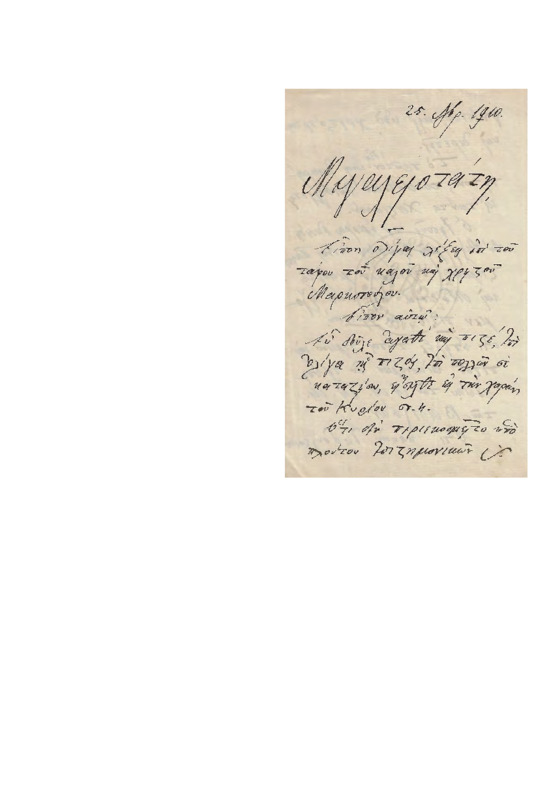 25. Ἀπρ. 1910.
Μεγαλειοτάτη,
Εἶπον ὀλίγας λέξεις ἐπὶ τοῦ
τάφου τοῦ καλοῦ καὶ χρηστοῦ
Μαρκοπούλου.
Εἶπον αὐτῷ:
Εὖ δοῦλε ἀγαθὲ καὶ πιστέ, ἐπὶ
ὀλίγα ἦς πιστός, ἐπὶ πολλῶν σε
καταστήσω, εἴσελθε εἰς τὴν χαρὰν
τοῦ Κυρίου σου.
Ὅτι δὲν περιεκοσμεῖτο ὑπὸ
πλούτου ἐπιστημονικῶν